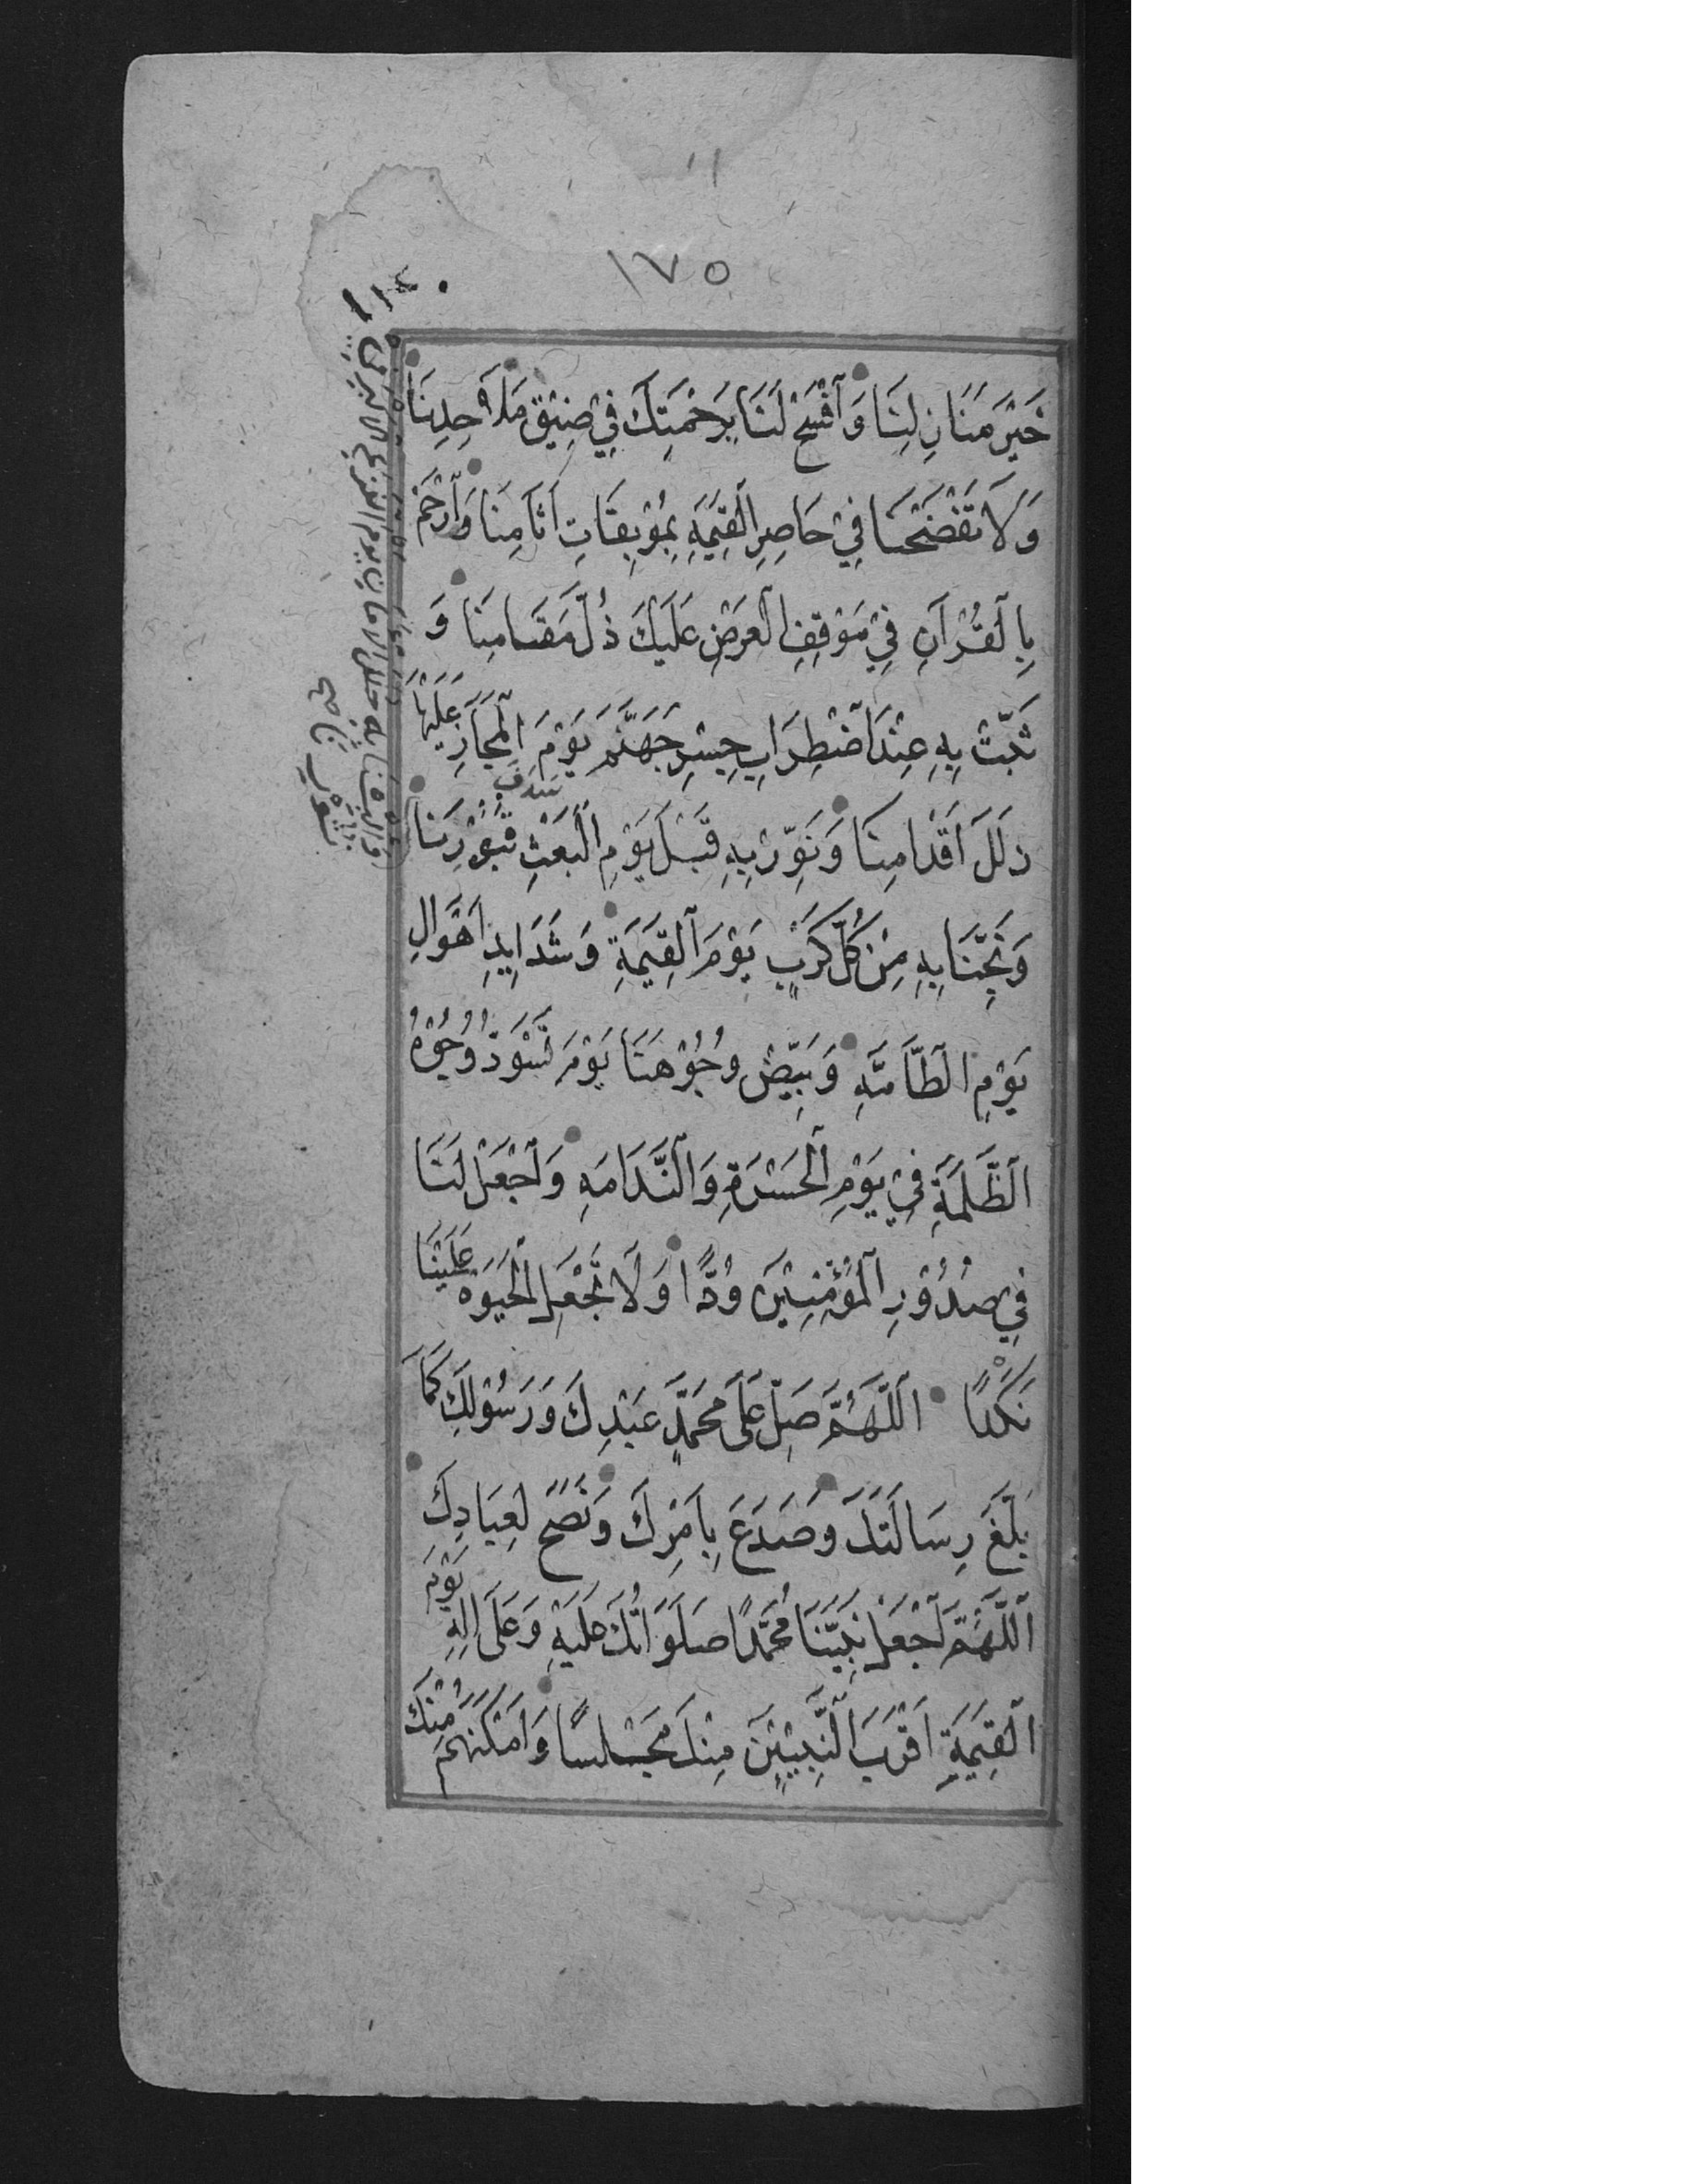 ١٧٥
خَيْرَ مَنَازِلِنَا وَٱفْسَحْ لَنَا بِرَحْمَتِكَ فِيْ ضِيْقِ مَلَاحِدِنَا
وَلَا تَفْضَحْنَا فِيْ حَاضِرِ الْقِيٰمَةِ بِمُوْبِقَاتِ اٰثَامِنَا وَٱرْحَمْ
بِالْقُرْاٰنِ فِيْ مَوْقِفِ الْعَرْضِ عَلَيْكَ ذُلَّ مَقَامِنَا وَ
ثَبِّتْ بِهٖ عِنْدَ ٱضْطِرَابِ جِسْرِ جَهَنَّمَ يَوْمَ الْمَجَازِ عَلَيْهَا
زَلَلَ اَقْدَامِنَا وَنَوِّرْ بِهٖ قَبْلَ يَوْمِ الْبَعْثِ قُبُوْرَنَا
وَنَجِّنَا بِهٖ مِنْ كُلِّ كَرْبٍ يَوْمَ الْقِيٰمَةِ وَشَدَايِدِ اَهْوَالِ
يَوْمِ الطَّامَّةِ وَبَيِّضْ وُجُوْهَنَا يَوْمَ تَسْوَدُّ وُجُوْهُ
الظَّلَمَةِ فِيْ يَوْمِ الْحَسْرَةِ وَالنَّدَامَةِ وَٱجْعَلْ لَنَا
فِيْ صُدُوْرِ الْمُؤْمِنِيْنَ وُدًّا وَلَا تَجْعَلِ الْحَيٰوةَ عَلَيْنَا
نَكَدًا اَللّٰهُمَّ صَلِّ عَلٰى مُحَمَّدٍ عَبْدِكَ وَرَسُوْلِكَ كَمَا
بَلَّغَ رِسَالَتَكَ وَصَدَعَ بِاَمْرِكَ وَنَصَحَ لِعِبَادِكَ
اَللّٰهُمَّ ٱجْعَلْ نَبِيَّنَا مُحَمَّدًا صَلَوَاتُكَ عَلَيْهِ وَعَلٰى اٰلِهٖ يَوْمَ
الْقِيٰمَةِ اَقْرَبَ النَّبِيّيْنَ مِنْكَ مَجْلِسًا وَاَمْكَنَهُمْ مِنْكَ